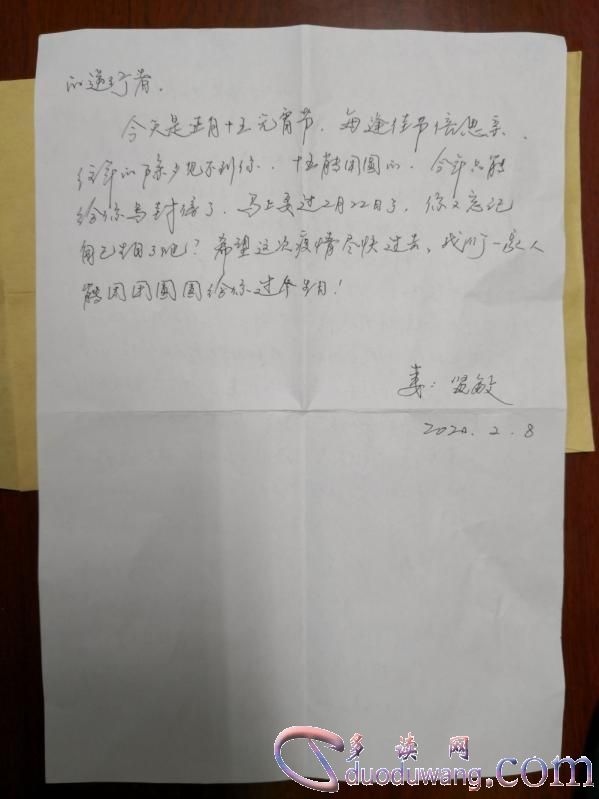 的逆行者.
今天是正月十五元宵节. 每逢佳节倍思亲.
往年的除夕见不到你. 十五能团圆的. 今年只能
给你写封信了. 马上要过2月22日了. 你又忘记
自己生日了吧? 希望这次疫情尽快过去, 我们一家人
能团团圆圆给你过个生日!
妻: 贤敏
2020. 2. 8
多读网
duoduwang.com